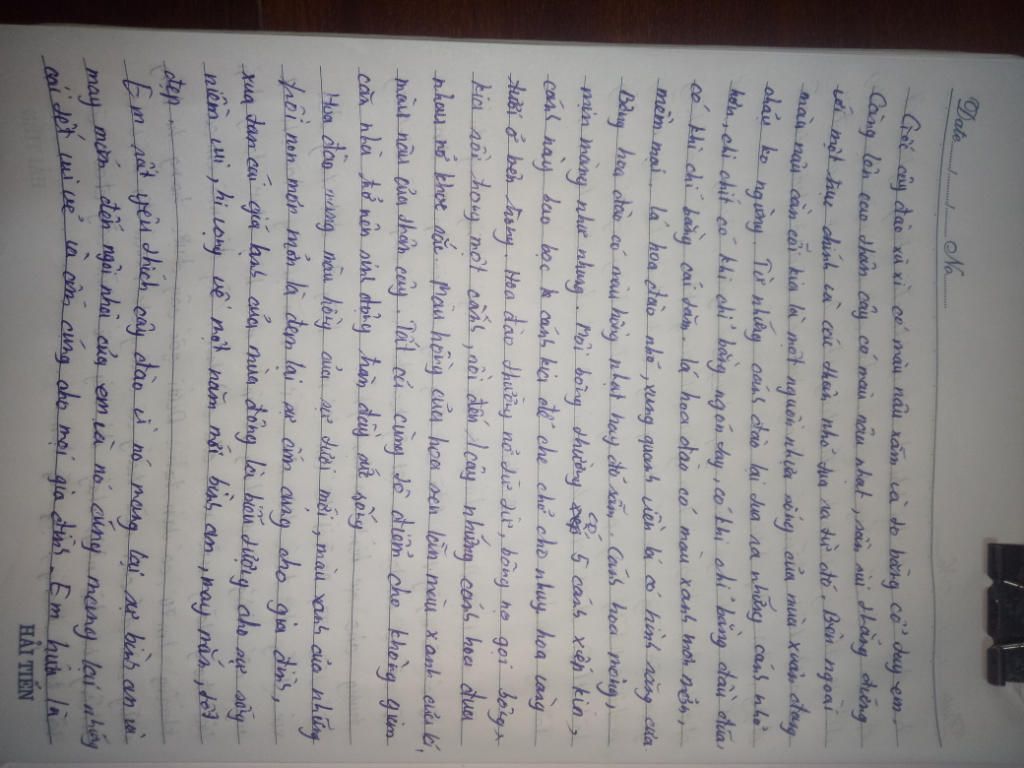 Date ....../....../...... No ..........
Gốc cây đào xù xì có màu nâu sẫm và to bằng cổ tay em.
Càng lên cao thân cây có màu nâu nhạt, sần sùi thẳng đứng
với một trục chính và các nhánh nhỏ đưa ra từ đó. Bên ngoài
màu nâu cằn cỗi kia là một nguồn nhựa sống của mùa xuân đang
chảy ko ngừng. Từ những cành đào lại đưa ra những cánh nhỏ
hơn, chi chít có khi chỉ bằng ngón tay, có khi chỉ bằng đầu đũa
có khi chỉ bằng cái tăm. Lá hoa đào có màu xanh mơn mởn,
mềm mại. Lá hoa đào nhỏ, xung quanh viền lá có hình răng cưa
Bông hoa đào có màu hồng nhạt hay đỏ sẫm. Cánh hoa mỏng,
mịn màng như nhung. Mỗi bông thường có 5 cánh xếp kín,
cánh này bao bọc k cánh kia để che chở cho nhụy hoa vàng
tươi ở bên trong. Hoa đào thường nở từ từ, bông nọ gọi bông
kia nở hồng một cành, rồi đến cây những cánh hoa đua
nhau nở khoe sắc. Màu hồng của hoa xen lẫn màu xanh của lá,
màu nâu của thân cây. Tất cả cùng tô điểm cho không gian
căn nhà trở nên sinh động tràn đầy sức sống
Hoa đào mang màu hồng của sự tươi mới, màu xanh của những
chồi non mơn mởn là đem lại sự ấm cúng cho gia đình,
xua tan cái giá lạnh của mùa đông là biểu tượng cho sự sống
niềm vui, hi vọng về một năm mới bình an, may mắn, tốt
đẹp.
Em rất yêu thích cây đào vì nó mang lại sự bình an và
may mắn đến ngôi nhà của em và nó cũng mang lại những
cái tết vui vẻ và ấm cúng cho mọi gia đình. Em hứa là
HẢI TIẾN